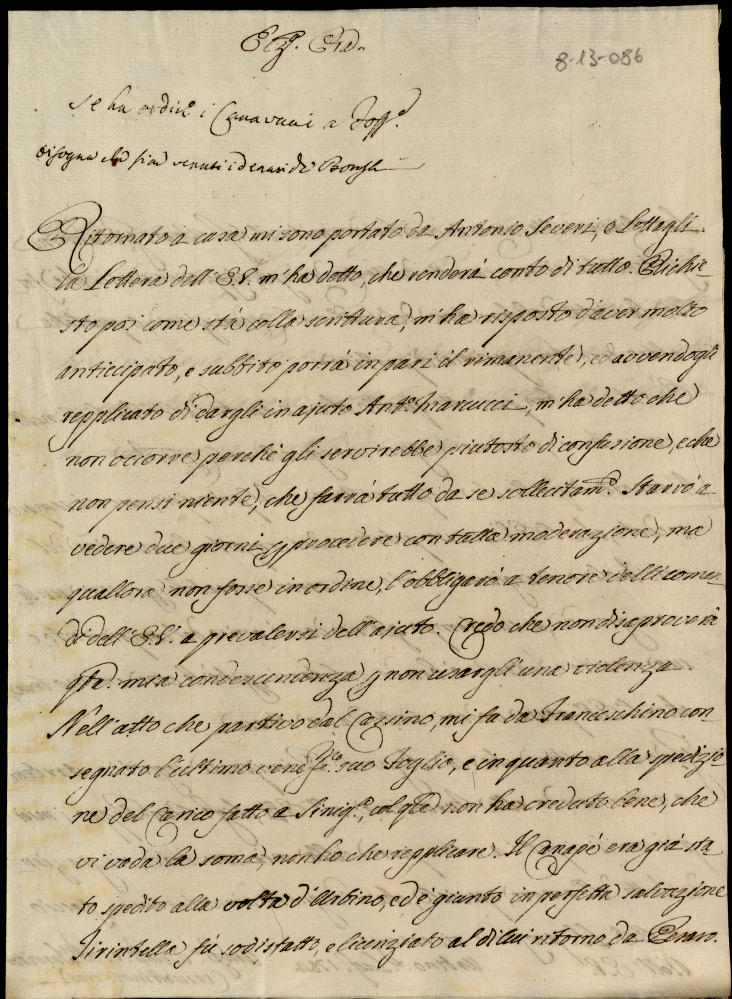 8-13-086
se ha ordin.e i Canavacci a
bisogna che sian venuti i denari di
Ritornato a casa mi sono portato da Antonio Severi, e lettagli
la Lettera dell'E.V. m'ha detto, che renderà conto di tutto. Richie-
sto poi come stà colla scrittura, m'ha risposto d'aver molto
anticipato, e subbito porrà in pari il rimanente, ed avendogli
repplicato di dargli in ajuto Ant.o Marcucci, m'ha detto che
non occorre perchè gli servirebbe piutosto di confusione, e che
non pensi niente, che farrà tutto da se sollecitam.e Starrò a
vedere due giorni p procedere con tutta moderazione, ma
quallora non fosse in ordine, l'obbligarò a tenore delli coman-
di dell'E.V. a prevalersi dell'ajuto. Credo che non disaproverà
q̃ta mia condescendenza p non usargli una violenza.
Nell'atto che partivo dal Cassino, mi fù da Franceschino con-
segnato l'ultimo vene.mo suo foglio, e in quanto alla spedizio-
ne del Carico fatto a Sinig.a, col q̃le non ha creduto bene, che
vi vada la soma, non ho che repplicare. Il Canapé era già sta-
to spedito alla volta d'Urbino, ed è giunto in perfetta salvazione
Tirintella fù sodisfatto, e licenziato al di lui ritorno da Pesaro.